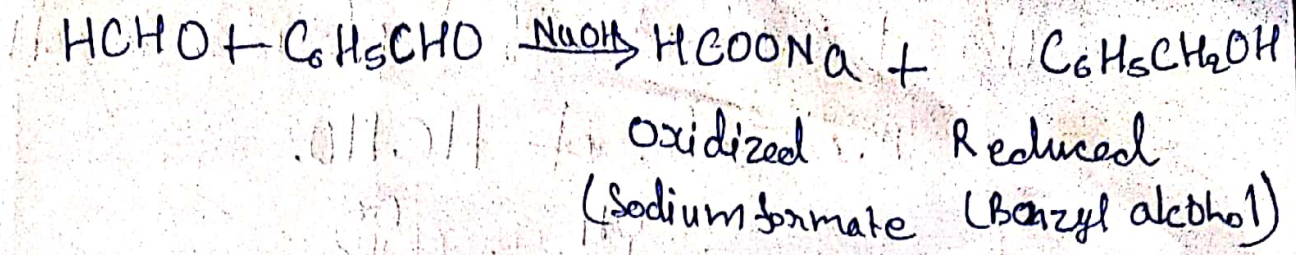 HCHO + C₆H₅CHO NaOH→ HCOONa + C₆H₅CH₂OH
Oxidized Reduced
(Sodium formate (Benzyl alcohol)